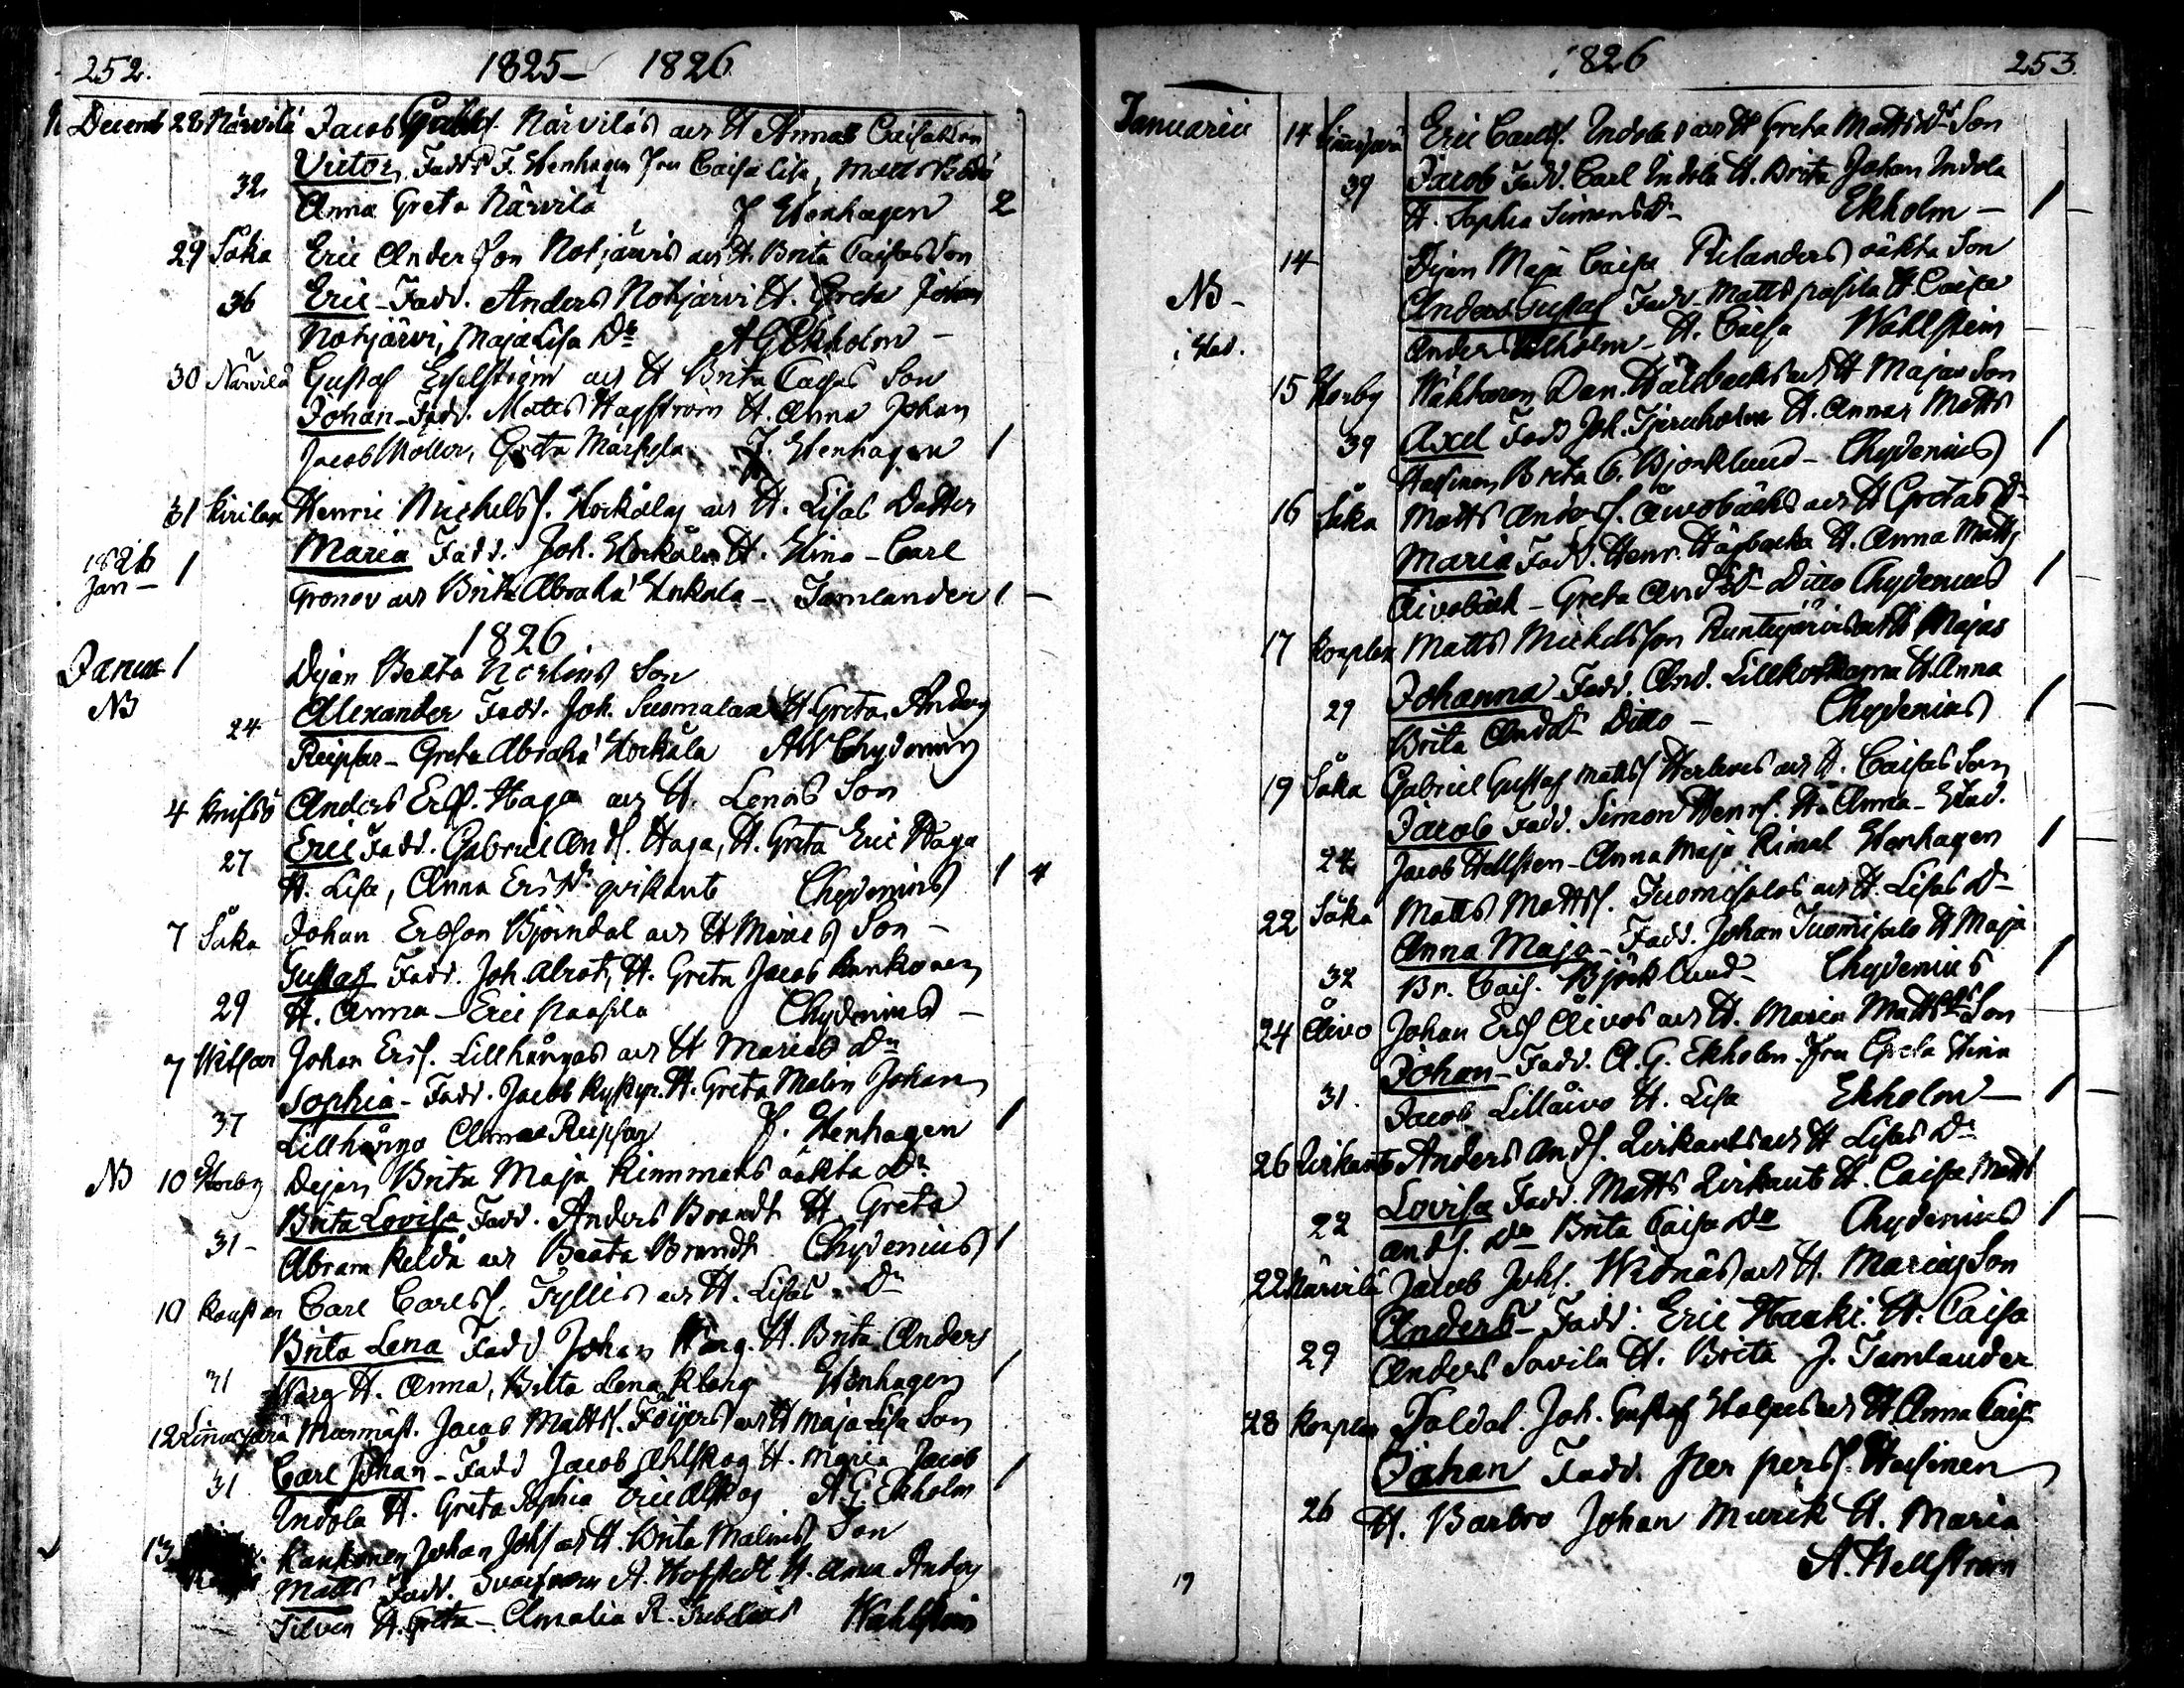 252. 1825– 1826
Decemb 28 Närvilä Jacob Närviläs och H Annas Caisas Son
Victor, Fadd. F. Stenhagen Fru Caisa Lisa, Matts
32 Anna Greta Närvilä J Stenhagen 2
29 Såka Eric Anderson Notjärvis och H. Brita Caisas Son
36 Eric – Fadd. Anders Notjärvi H. Greta Johan
Notjärvi, Maja Lisa Dr A G Ekholm –
30 Närvilä Gustaf och H Brita Caisas Son
Johan – Fadd. Matts Hagström H. Anna Johan
Jacob Möller, Greta J. Stenhagen 1
31 Kirilax Henric Michelss. och H. Lisas Dotter
Maria Fadd. Joh. H. Stina – Carl
1826
Jan – 1
Gronov och Brita Abraha – Tamlander 1 –
1826
Januar 1 Dejan Beata Norlins Son
NB
24 Alexander Fadd. Joh. Suomalax H. Greta. Anders
Reipsar – Greta Abraha AW Chydenius
4 Knifsö Anders Erss. Haga och H. Lenas Son
27 Eric Fadd. Gabriel Ands. Haga, H. Greta Eric Haga
H. Lisa, Anna Ersdr qvikant Chydenius 1 4
7 Såka Johan Ersson Björndal och H Maries Son –
Gustaf Fadd. Joh. Alrot, H. Greta Jacob Kankonen
29 H. Anna – Eric Paasila Chydenius –
7 Witsar Johan Erss. Lillhångas och H Marias Dr
Sophia – Fadd. Jacob H. Greta Malin Johan
37 Lillhånga Anna Reipsar J. Stenhagen 1
NB 10 Storby Dejan Brita Maja Kinnmans oäkta Dr
Brita Lovisa Fadd. Anders Brandt H. Greta
31 – Abram Keldå och Beata Brandt Chydenius 1
10 Kaustar Carl Carlss. Tyllis och H. Lisas Dr
Brita Lena Fadd Johan Warg. H. Brita Anders
31 Warg H. Anna, Brita Lena Klang Stenhagen 1
12 Linnusperä Murmäst. Jacob Mattss. Föijers och H Maja Lisa Son
31 Carl Johan – Fadd Jacob Ahlskog H. Maria Jacob
Indola H. Greta Sophia Eric Alskog A. G. Ekholm 1
13 Kankonen Johan Johss och H. Brita Malins Son
Matts Fadd. Svarfvaren A. Hofstedt H. Anna Anders
Silven H. Greta – Amalia R. Wahlstein
1826 253.
Januarii 14 Linnusperä Eric Carlss. Indolas och H Greta Mattsdr Son
39 Jacob Fadd. Carl Indola H. Brita Johan Indola
H. Sophia Simonsdr Ekholm – 1
14 Dejan Maja Caisa Rilanders oäkta Son
NB – Anders Gustaf Fadd – Matts Pasila H. Caisa
i Stad. Anders H. Caisa Wahlstein
15 Storby Dan. Hälsbacks och H Majas Son
39 Axel Fadd Joh. Tjernholm H. Anna Matts
Hassinen Brita C. Björklund – Chydenius 1
16 Såka Matts Anders. Åivobäcks och H Gretas Dr
Maria Fadd. Henr. Högbacka H. Anna Matts
Åivobäck – Greta Andsdr Ditto Chydenius 1
17 Korplax Matts Michelsson Runtujärvis och H Majas
29 Johanna Fadd. And. H. Anna
Brita Anddr Ditto – Chydenius 1
19 Såka Gabriel Gustaf Mattss Herlevis och H. Caisas Son
Jacob Fadd. Simon Henrs. H. Anna – Stad.
24 Jacob Hellsten – Anna Maja Rimal Stenhagen 1
22 Såka Matts Mattss. Tuomisalos och H. Lisas Dr
Anna Maja – Fadd. Johan Tuomisalo H Maja
32 Br. Cais. Björklund Chydenius 1
24 Åivo Johan Erss Åivos och H. Maria Mattsdrs Son
Johan – Fadd. A. G. Ekholm Fru Greta Stina
31. Jacob Lillåivo H. Lisa Ekholm – 1
26 Qvikant Anders Ands. Qvikants och H Lisas Dr
Lovisa Fadd. Matts Qvikant H. Caisa Matts
22 Ands. Dr Brita Caisa Dr Chydenius 1
22 Närvilä Jacob Johs. Widnäs och H. Marias Son
Anders – Fadd: Eric Haaki. H. Caisa
29 Anders Savila H. Brita J. Tamlander
28 Korplax Soldat. Joh. Gustaf Stolpes och H Anna Cais
Johan Fadd. Per Perss. Hassinen
26 H. Barbro Johan Murik H. Maria
A. Hellström
19